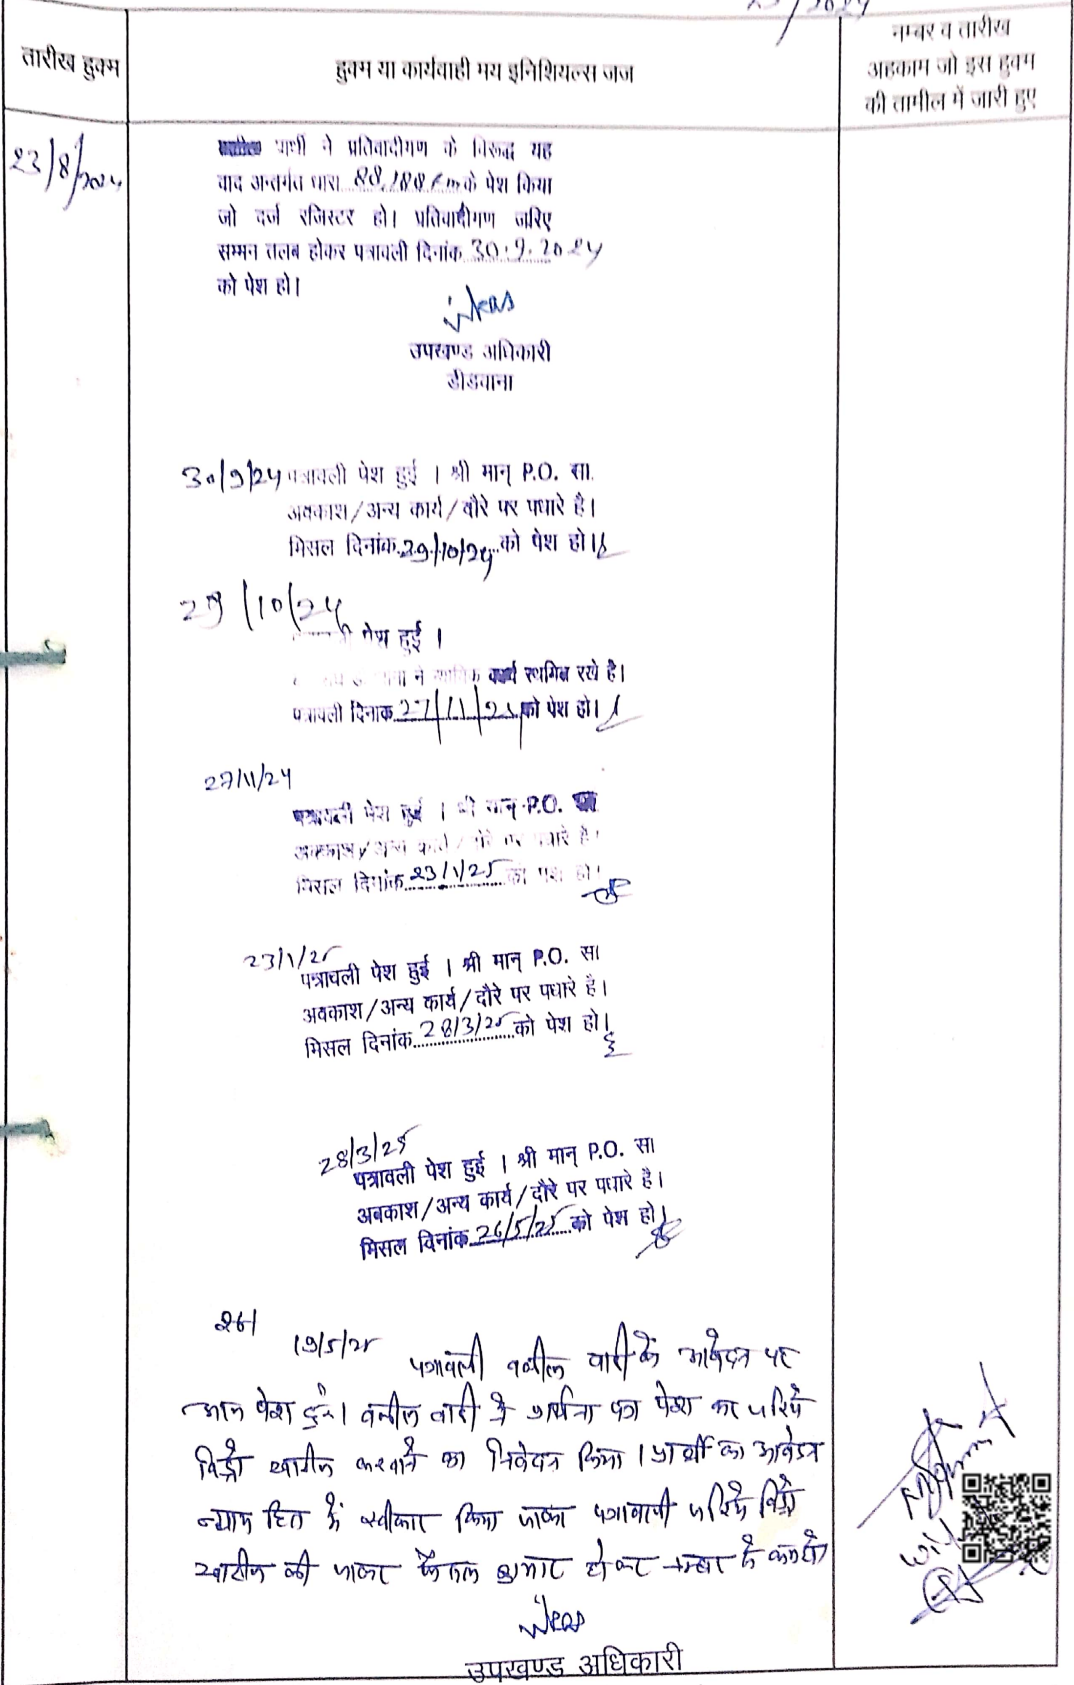 तारीख हुक्म
हुक्म या कार्यवाही मय इनिशियल्स जज
नम्बर व तारीख
अहकाम जो इस हुक्म
की तामील में जारी हुए
23/8/2024
प्रार्थी ने प्रतिवादीगण के विरूद्ध यह
वाद अन्तर्गत धारा 88,188 के पेश किया
जो दर्ज रजिस्टर हो। प्रतिवादीगण जरिए
सम्मन तलब होकर पत्रावली दिनांक 30.9.2024
को पेश हो।
उपखण्ड अधिकारी
डीडवाना
30/9/24 पत्रावली पेश हुई । श्री मान् P.O. सा.
अवकाश/अन्य कार्य/दौरे पर पधारे है।
मिसल दिनांक 29/10/24 को पेश हो।
29/10/24
पेश हुई ।
ने कार्य स्थगित रखे है।
पत्रावली दिनांक 27/11/24 को पेश हो।
27/11/24
पत्रावली पेश हुई । श्री मान् P.O.
अवकाश/अन्य कार्य/दौरे पर पधारे है।
मिसल दिनांक 23/1/25 को पेश हो।
23/1/25
पत्रावली पेश हुई । श्री मान् P.O. सा
अवकाश/अन्य कार्य/दौरे पर पधारे है।
मिसल दिनांक 28/3/25 को पेश हो।
28/3/25
पत्रावली पेश हुई । श्री मान् P.O. सा
अवकाश/अन्य कार्य/दौरे पर पधारे है।
मिसल दिनांक 26/5/25 को पेश हो।
19/5/25 पत्रावली वकील वादी के आवेदन पर
आज पेश हुई। वकील वादी ने प्रार्थना पत्र पेश कर जरिये
विड्रो खारीज करवाने का निवेदन किया। प्रार्थी का आवेदन
न्याय हित में स्वीकार किया जाकर पत्रावली जरिये विड्रो
खारीज की जाकर फैसल शुमार होकर नम्बर से कम हो।
उपखण्ड अधिकारी